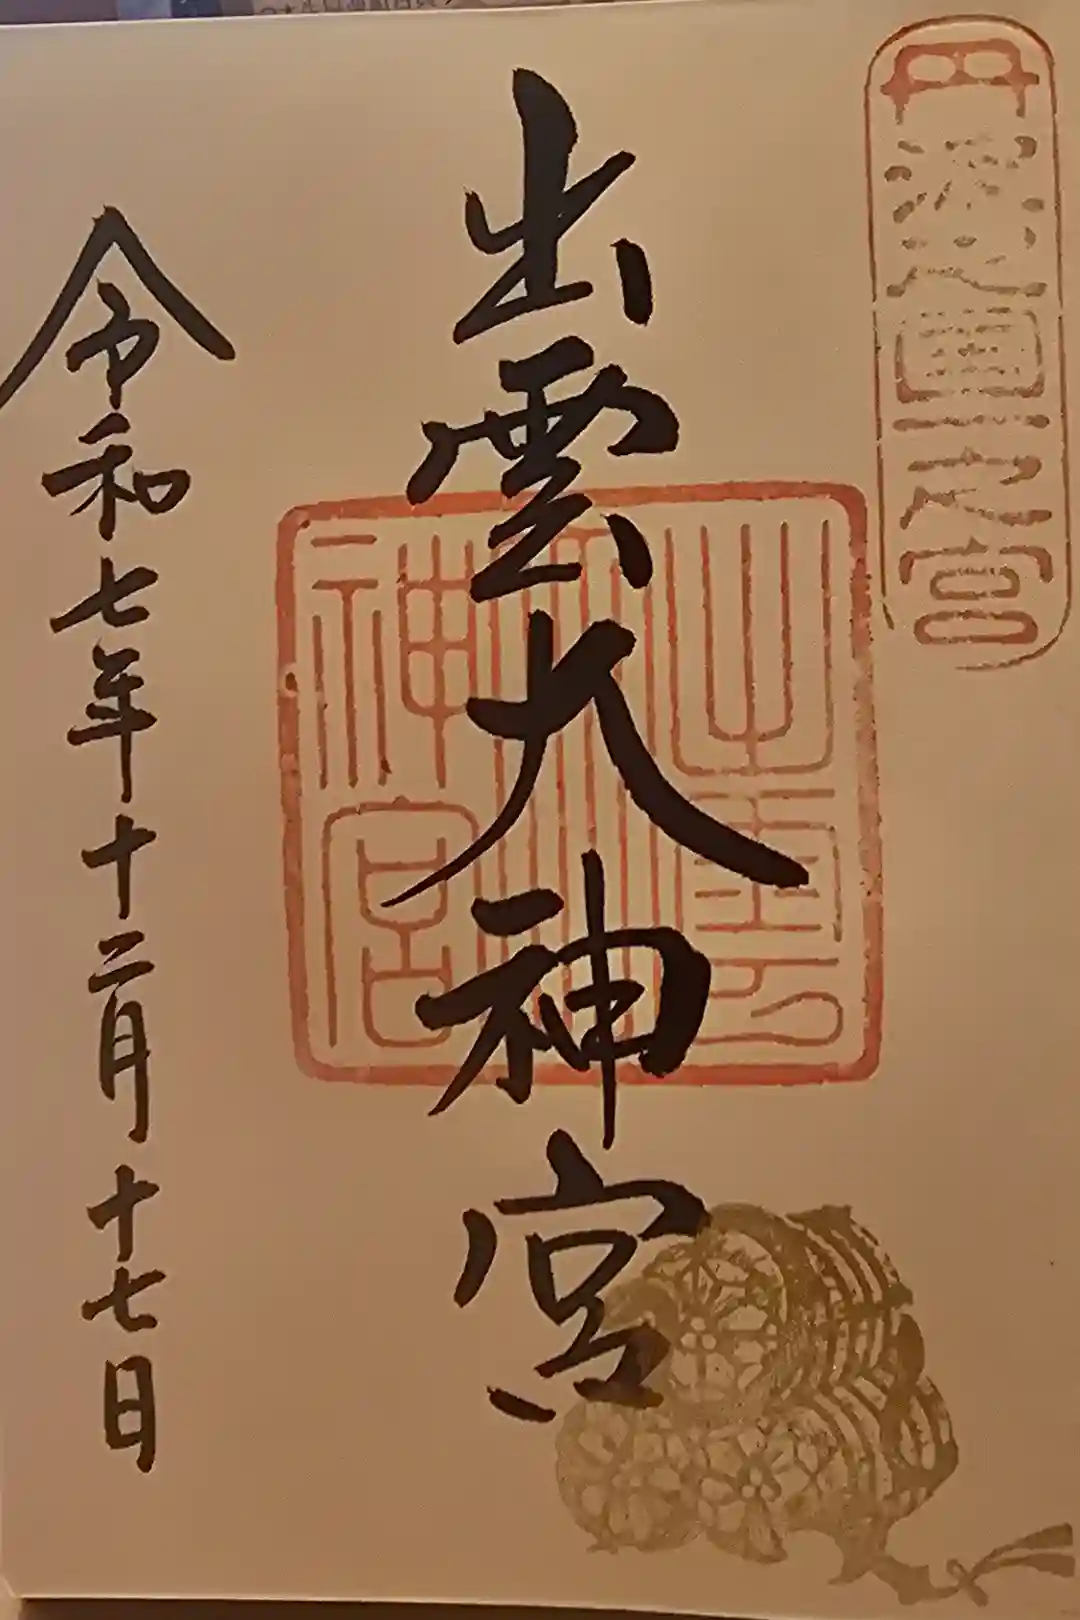 丹波國一之宮
出雲大神宮
出雲大神宮
令和七年十二月十七日